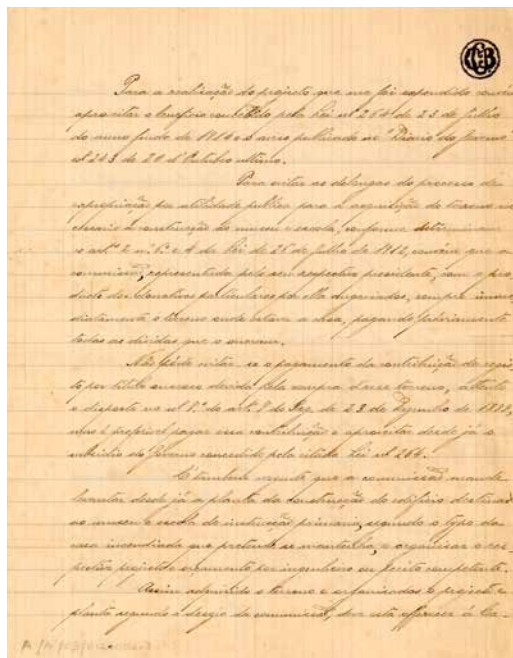 Para a realização do projecto que me foi expendido convém
aproveitar o beneficio concedido pela Lei nº 264 de 23 de Julho
do anno findo de 1914 e o aviso publicado no "Diario do Governo"
nº 243 de 20 d'Outubro ultimo.
Para evitar as delongas do processo de
expropriação por utilidade publica para a acquisição do terreno ne-
cessario á construcção do museu e escola, conforme determinam
os artºs 2 nº 1º e 4 da Lei de 26 de Julho de 1912, convém que a
commissão, representada pelo seu respectivo presidente, com o pro-
ducto dos donativos particulares por ella angariados, compre imme-
diatamente o terreno onde estava a casa, pagando
todas as dividas que o oneram.
Não póde evitar-se o pagamento da contribuição de regis-
to por titulo oneroso devida pela compra d'esse terreno, attento
o disposto no nº 8º do artº 8 do Reg. de 23 de Dezembro de 1899,
mas é preferivel pagar essa contribuição e aproveitar desde já o
subsidio do Governo concedido pela citada Lei nº 264.
É tambem urgente que a commissão mande
levantar desde já a planta da construcção do edificio destinado
ao museu e escola de instrucção primaria, segundo o typo da
casa incendiada que pretende se mantenha, e organisar o res-
pectivo projecto e orçamento por ingenheiro ou perito competente.
Assim adquirido o terreno e organisados o projecto e
planta segundo o desejo da commissão, deve esta offerecer á Ca-